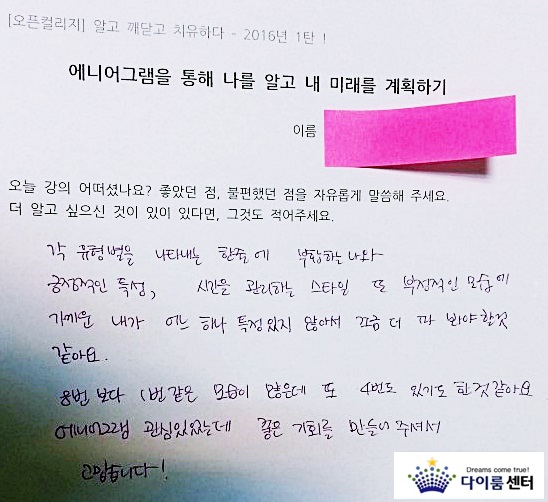 [오픈컬리지] 알고 깨닫고 치유하다 - 2016년 1탄 !
에니어그램을 통해 나를 알고 내 미래를 계획하기
이름
오늘 강의 어떠셨나요? 좋았던 점, 불편했던 점을 자유롭게 말씀해 주세요.
더 알고 싶으신 것이 있이 있다면, 그것도 적어주세요.
각 유형별을 나타내는 한줄에 부합하는 나와
긍정적인 특성, 시간을 관리하는 스타일 또 부정적인 모습에
가까운 내가 어느 하나 특정있지 않아서 조금 더 파 봐야 할것
같아요.
8번 보다 1번 같은 모습이 많은데 또 4번도 있기도 한것 같아요
에니어그램 관심있었는데 좋은 기회를 만들어 주셔서
고맙습니다!
Dreams come true!
다이룸센터